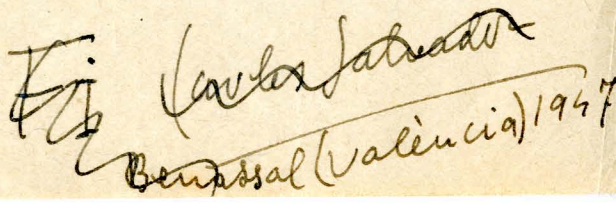 Carles Salvador
Benassal (València) 1947